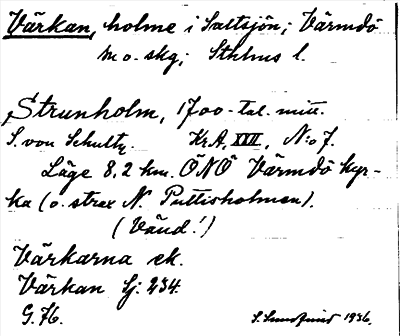 Värkan, holme i Saltsjön; Värmdö
m o. skg; Sthlms l.
Strunholm, 1700-tal. mitt.
S. von Schultz. Kr.A. XVII, N:o 7.
Läge 8,2 km. ÖNÖ Värmdö kyr-
ka (o. strax N. Puttisholmen).
(Vänd!)
Värkarna ek.
Värkan Sj: 234.
G. 76.
1936.